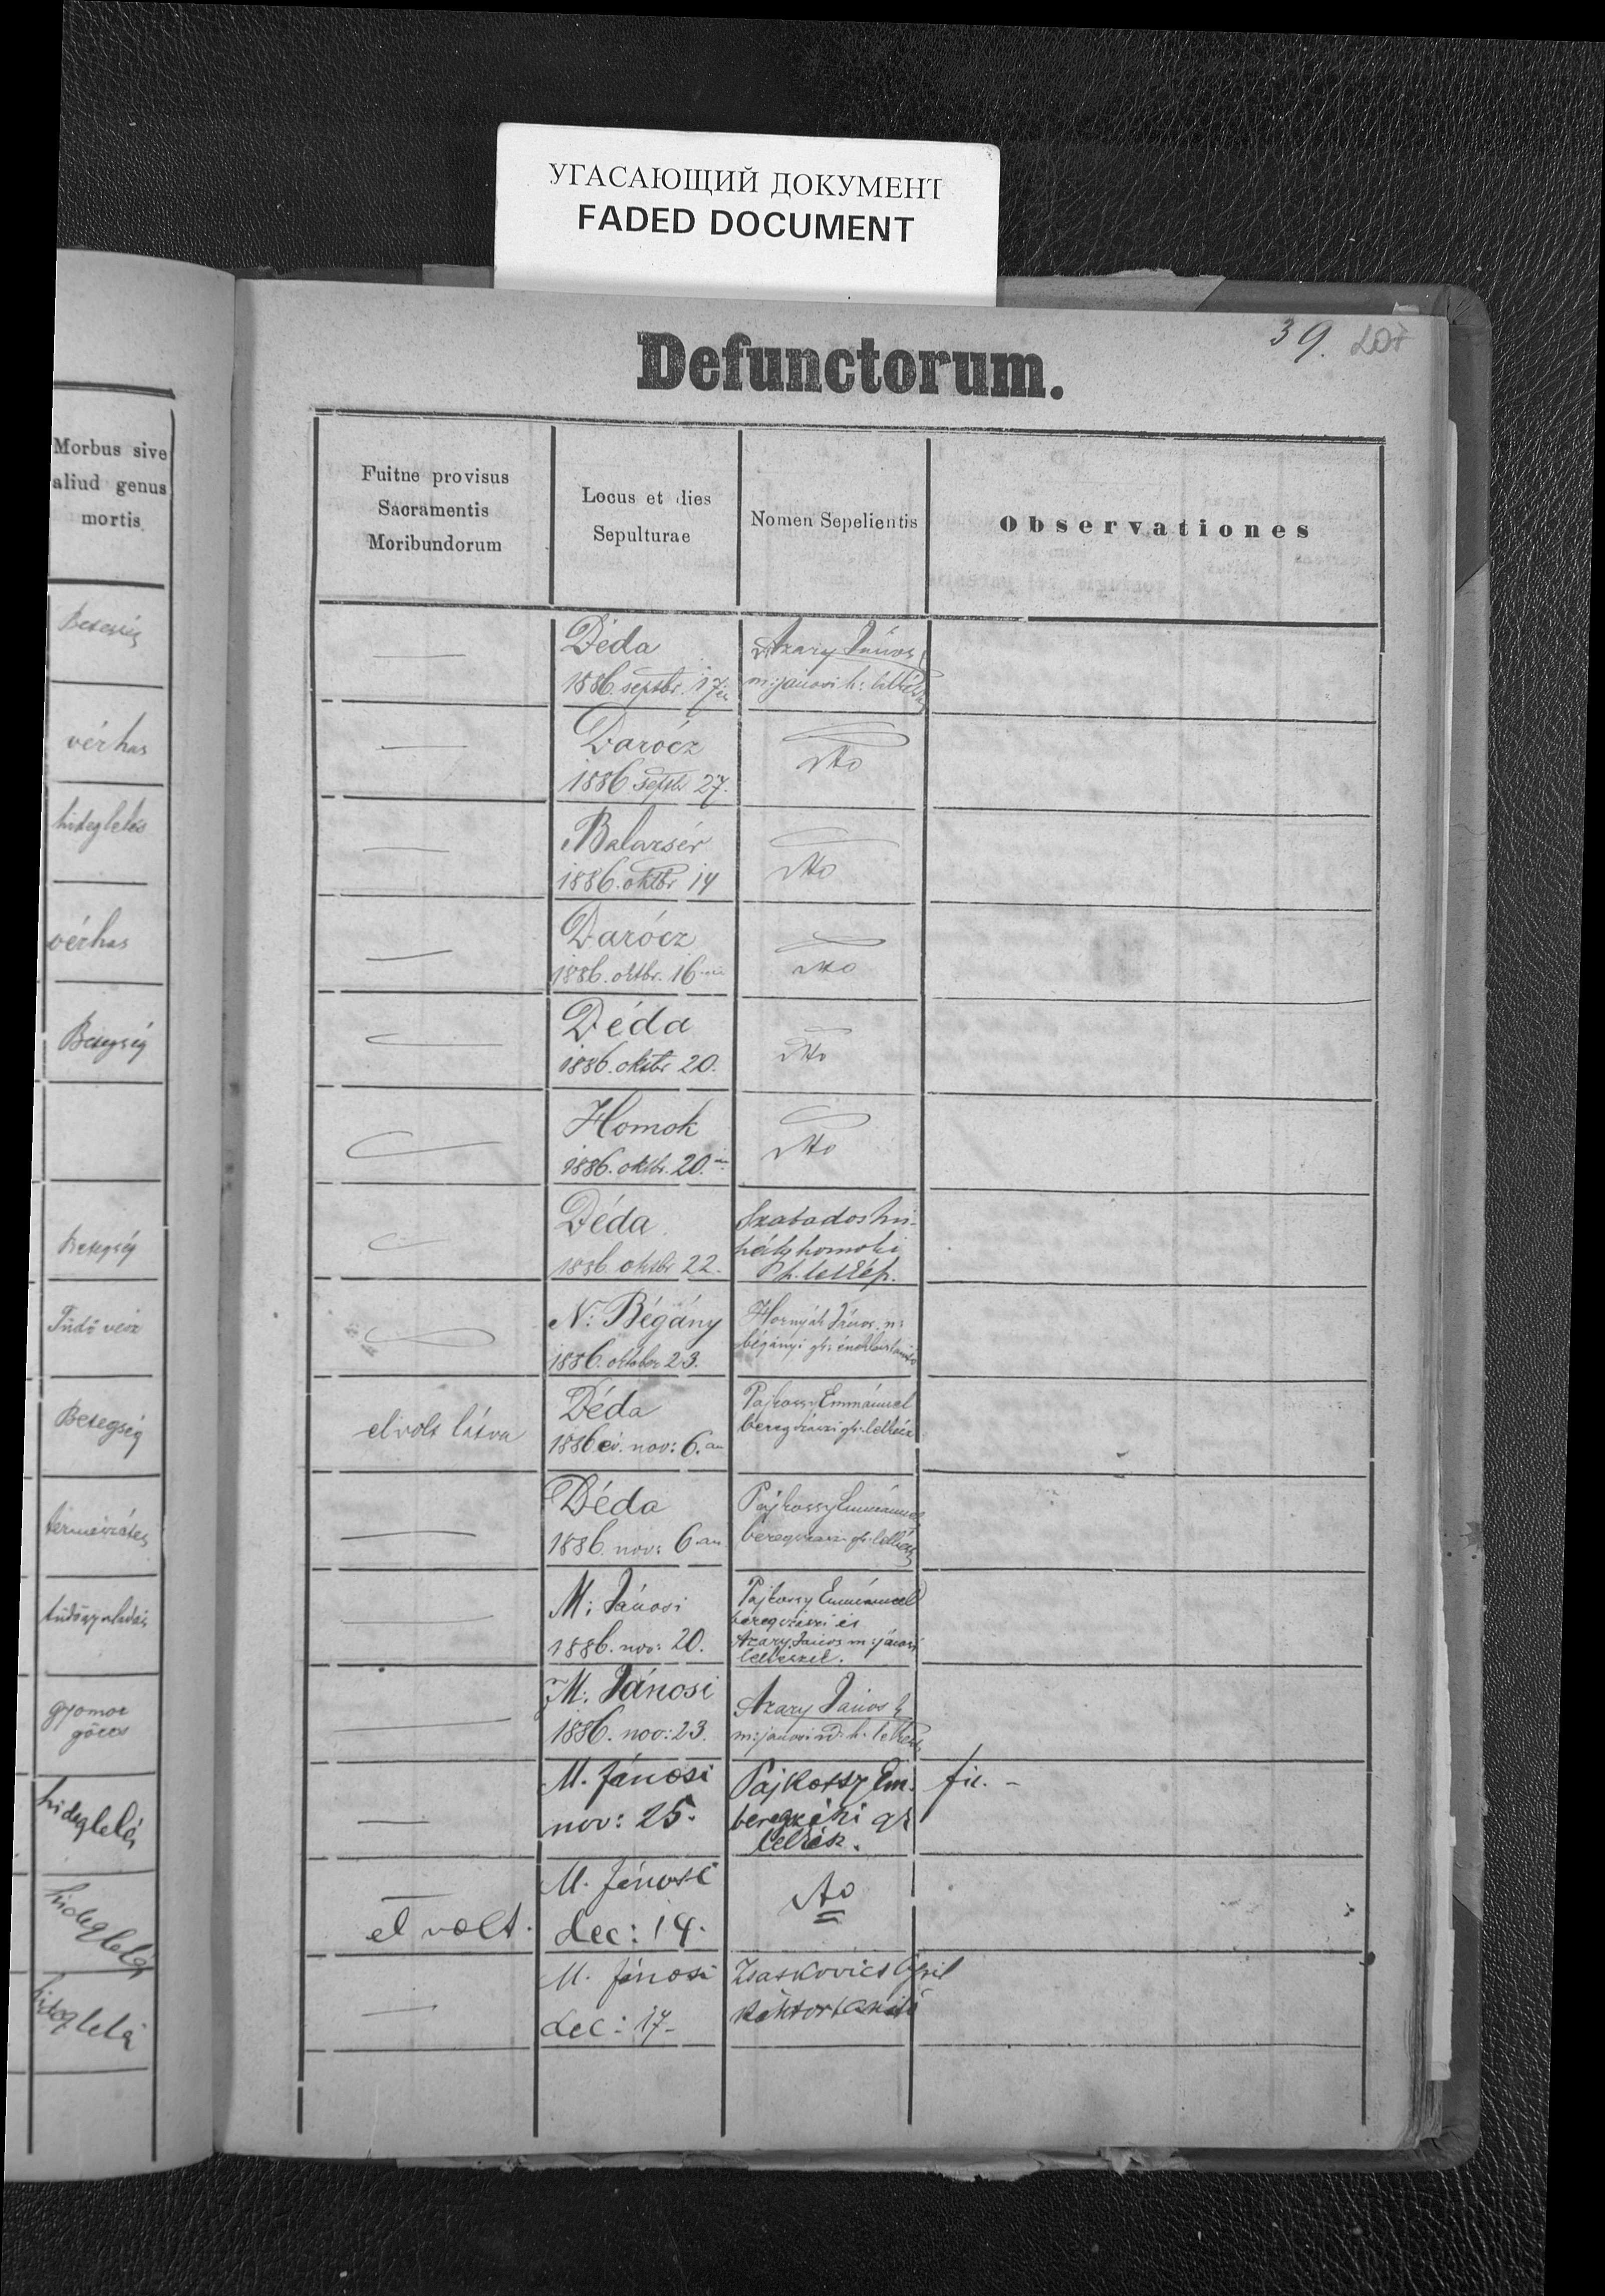 УГАСАЮЩИЙ ДОКУМЕНТ
FADED DOCUMENT
39. 207
Defunctorum.
Morbus sive
aliud genus
mortis
Fuitne provisus
Sacramentis
Moribundorum
Locus et dies
Sepulturae
Nomen Sepelientis
Observationes
Betegség
Déda
1886. septbr. 17én
Azary János
m: janosi h: lelkész
vérhas
Darócz
1886 septbr 27.
dtto
hideglelés
Balazsér
1886. oktbr 14
dtto
vérhas
Darócz
1886. oktbr. 16
dtto
Betegség
Déda
1886. oktbr 20.
dtto
Homok
1886. oktbr. 20.
dtto
Betegség
Déda
1886. oktbr 22.
Szabados Mi-
hály homoki
lelkész
Tüdő vész
N: Bégány
1886. oktober 23.
Hornyák János n:
bégányi gk:
Betegség
el volt látva
Déda
1886 év. nov: 6.án
Pajkossy Emmánuel
beregszászi gk. lelkész
természetes
Déda
1886. nov: 6án
Pajkossy Emmánuel
beregszászi gk. lelkész
M: Jánosi
1886. nov: 20.
Pajkossy Emmánuel
beregszászi és
Azary János m: jánosi
lelkészek.
gyomor
görcs
M: Jánosi
1886. nov: 23.
Azary János
m: janosi h. lelkész
hideglelés
M. Jánosi
nov: 25.
Pajkossy Em.
gk
lelkész.
hideglelés
el volt.
M. Jánosi
dec: 14.
dto
hideglelés
M. Jánosi
dec: 17.
Zsaskovics
kántortanító